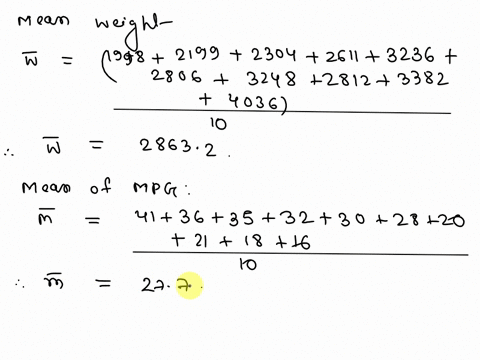 Mean weight-
w̅ = (1998 + 2199 + 2304 + 2611 + 3236 +
2806 + 3248 + 2812 + 3382
+ 4036)
10
∴ w̅ = 2863.2.
Mean of MPG:
m̅ = 41+36+35+32+30+28+20
+21+18+16
10
∴ m̅ = 27.7.